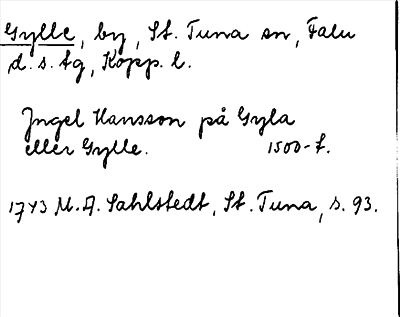 Gylle, by, St. Tuna sn, Falu
d. s. tg, Kopp. l.
Ingel Hansson på Gyla
eller Gylle. 1500-t.
1743 M. A. Sahlstedt, St. Tuna, s. 93.